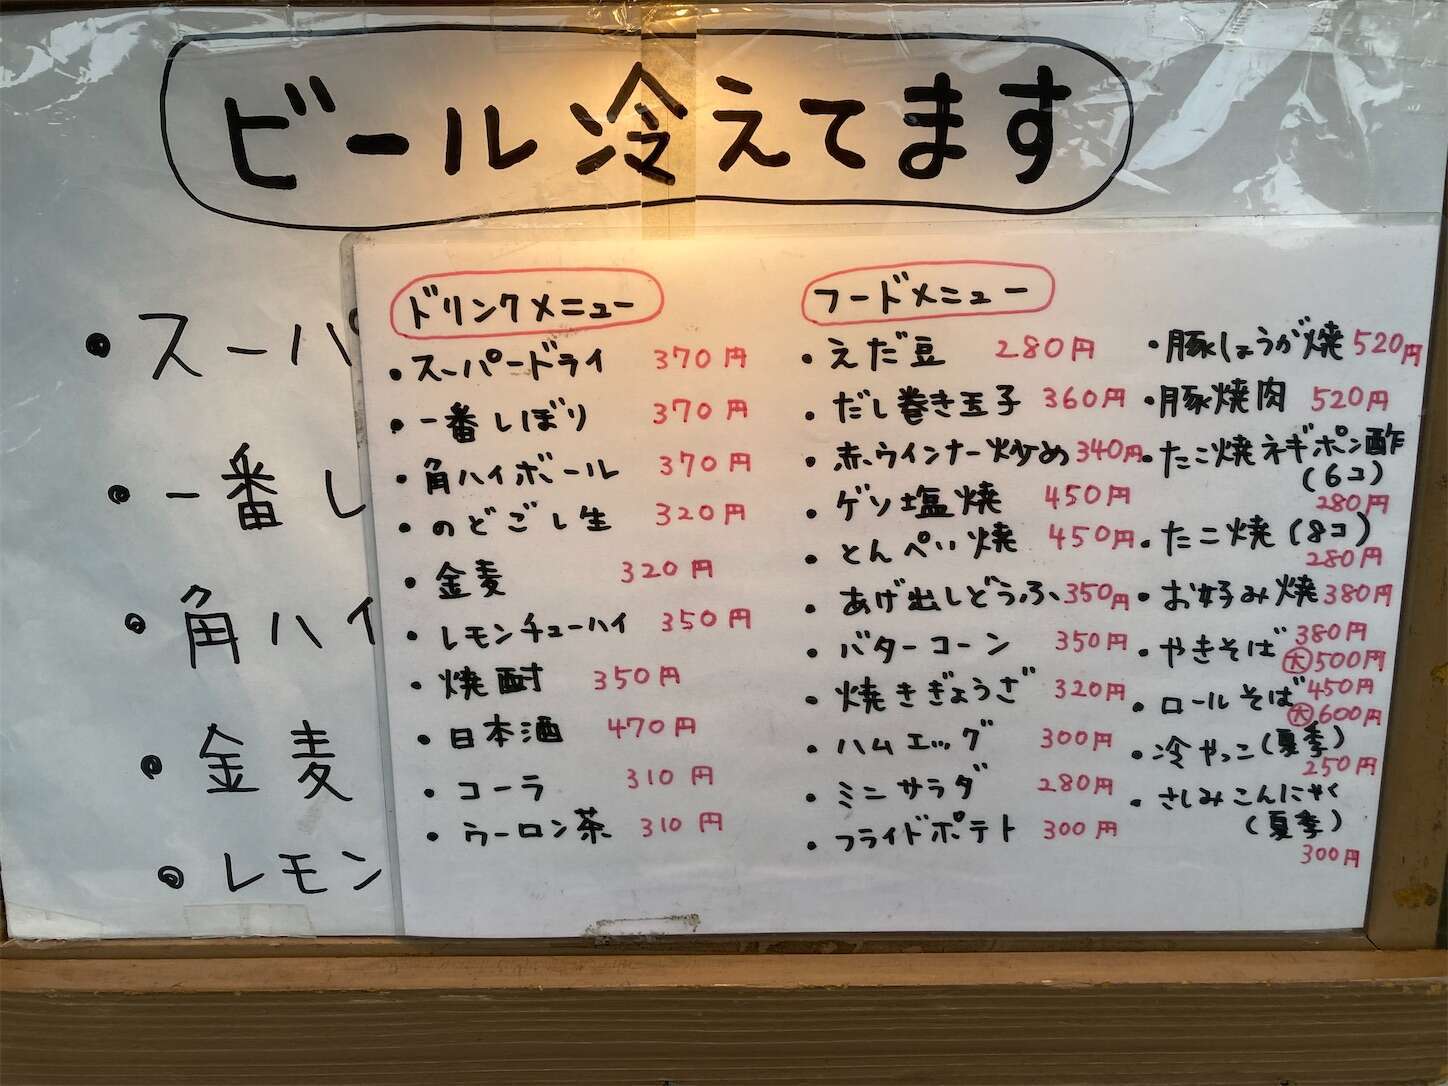 ビール冷えてます
・スーパ
・一番し
・角ハイ
・金麦
・レモン
ドリンクメニュー
・スーパードライ 370円
・一番しぼり 370円
・角ハイボール 370円
・のどごし生 320円
・金麦 320円
・レモンチューハイ 350円
・焼酎 350円
・日本酒 470円
・コーラ 310円
・ウーロン茶 310円
フードメニュー
・えだ豆 280円
・だし巻き玉子 360円
・赤ウインナー炒め 340円
・ゲソ塩焼 450円
・とんぺい焼 450円
・あげ出しどうふ 350円
・バターコーン 350円
・焼きぎょうざ 320円
・ハムエッグ 300円
・ミニサラダ 280円
・フライドポテト 300円
・豚しょうが焼 520円
・豚焼肉 520円
・たこ焼ネギポン酢
(6コ)
280円
・たこ焼(8コ)
280円
・お好み焼 380円
・やきそば 380円
大500円
・ロールそば 450円
大600円
・冷やっこ(夏季)
250円
・さしみこんにゃく
(夏季)
300円